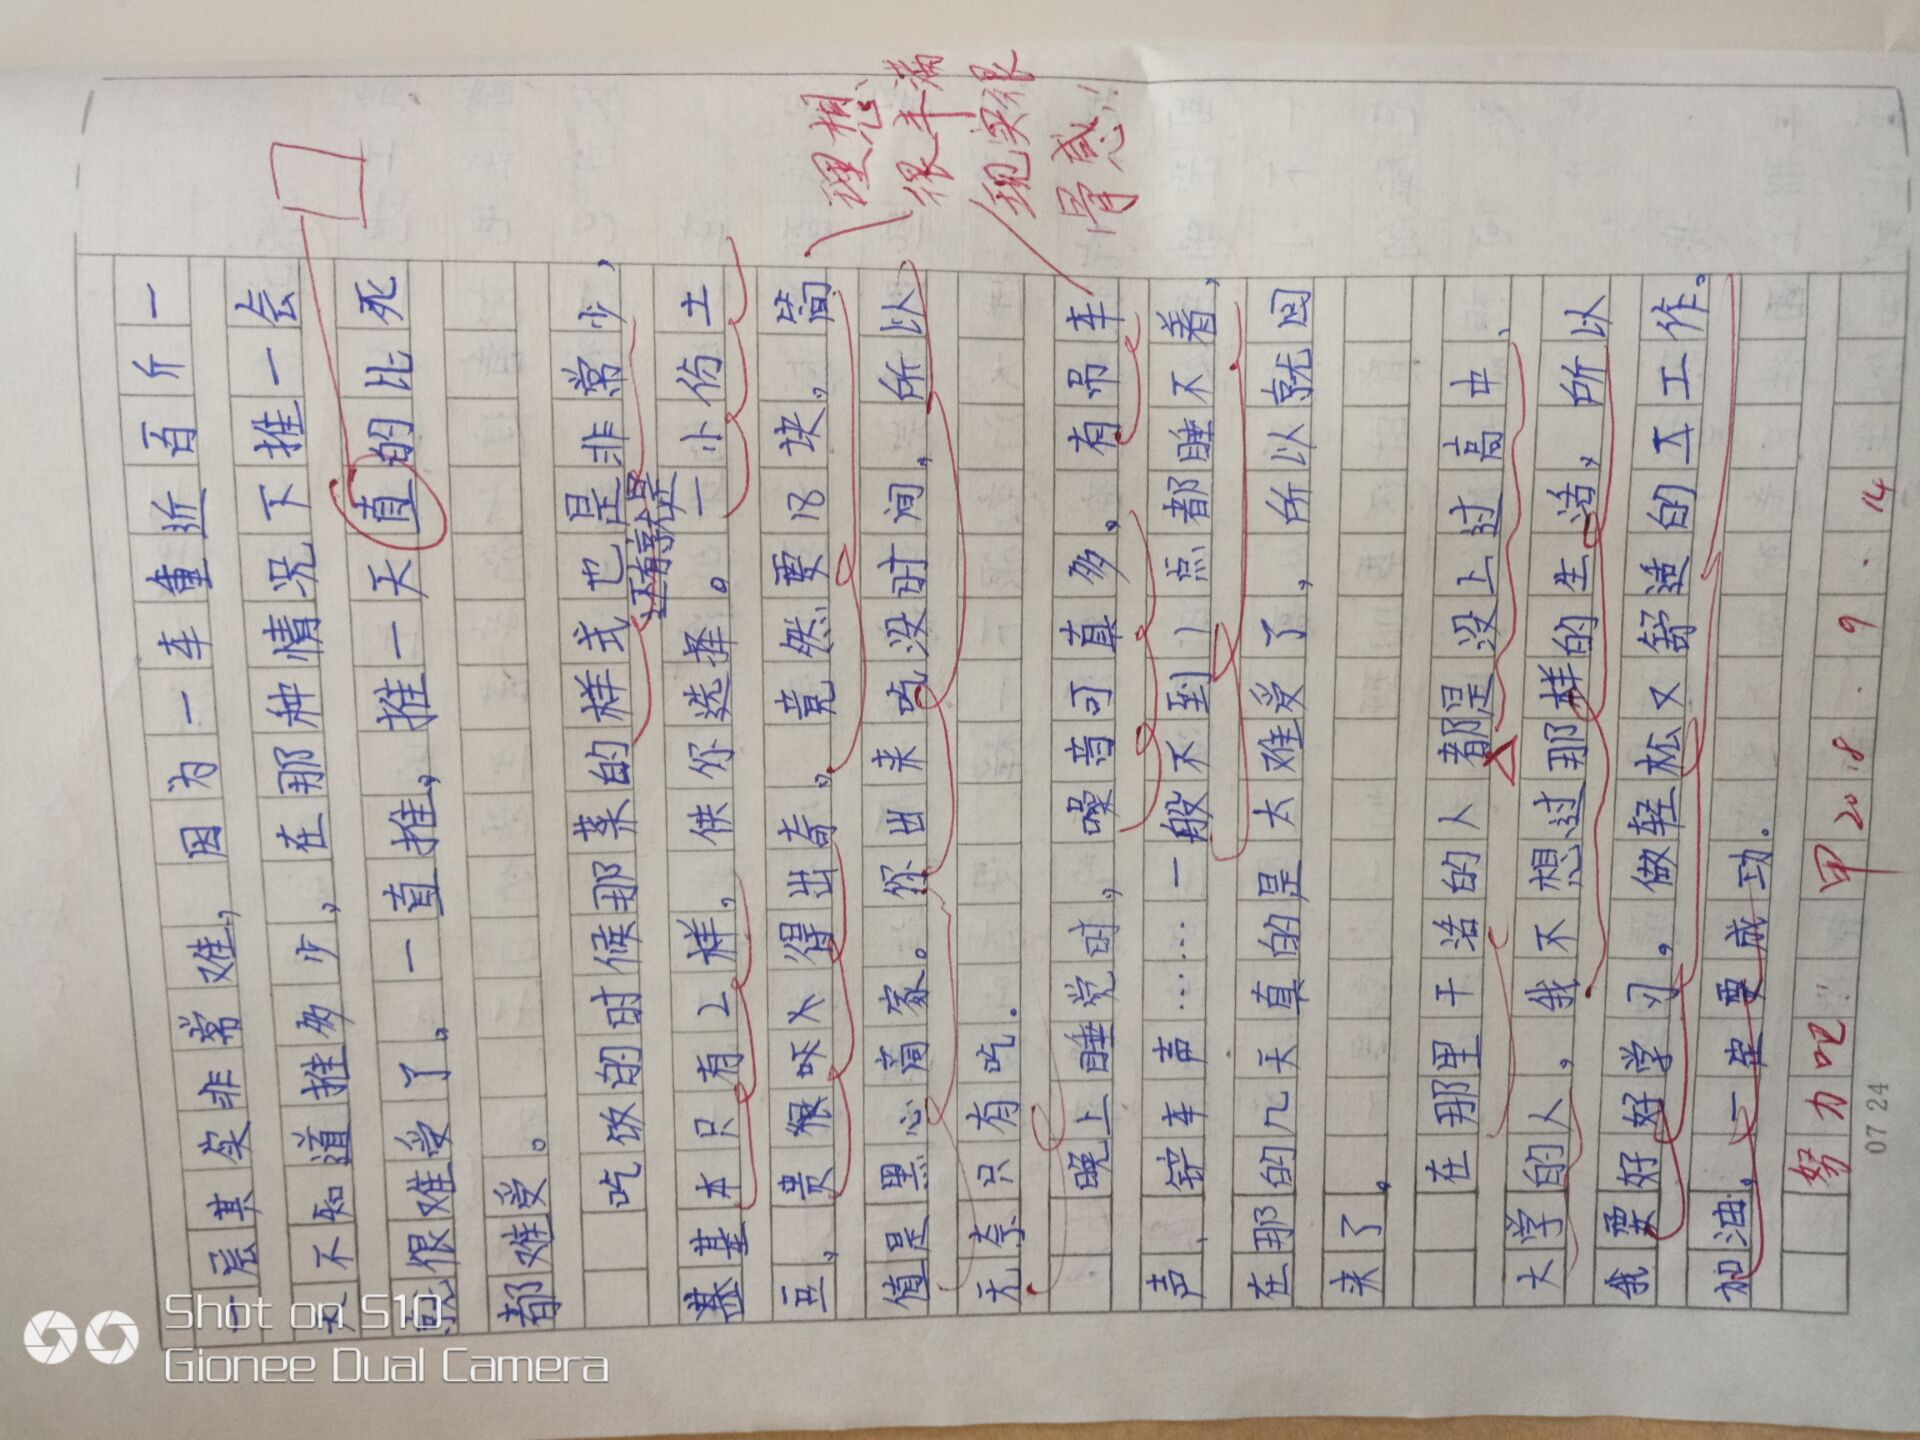 一层其实非常难，因为一车重近百斤一
天不知道推多少，在那种情况下推一会
就很难受了。一直推，推一天直的比死
都难受。
吃饭的时候那菜的样式也是非常少，
还有就是
基本只有2样，供你选择。一小份土
豆，贵很呀人得出奇。竟然要18块，简
值是黑心商家。你出来吃没时间，所以
无奈只有吃.
晚上睡觉时，噪音可真多。有吊车
声，铲车声……一般不到1点都睡不着，
在那的几天真的是太难受了，所以就回
来了.
在那里干活的人都是没上过高中、
大学的人，我不想过那样的生活，所以
我要好好学习。做轻松又舒适的工作。
加油.一定要成功.
理想
很丰满
现实很
骨感!!
努力吧!! 甲 2018.9.14
0724
Shot on S10
Gionee Dual Camera